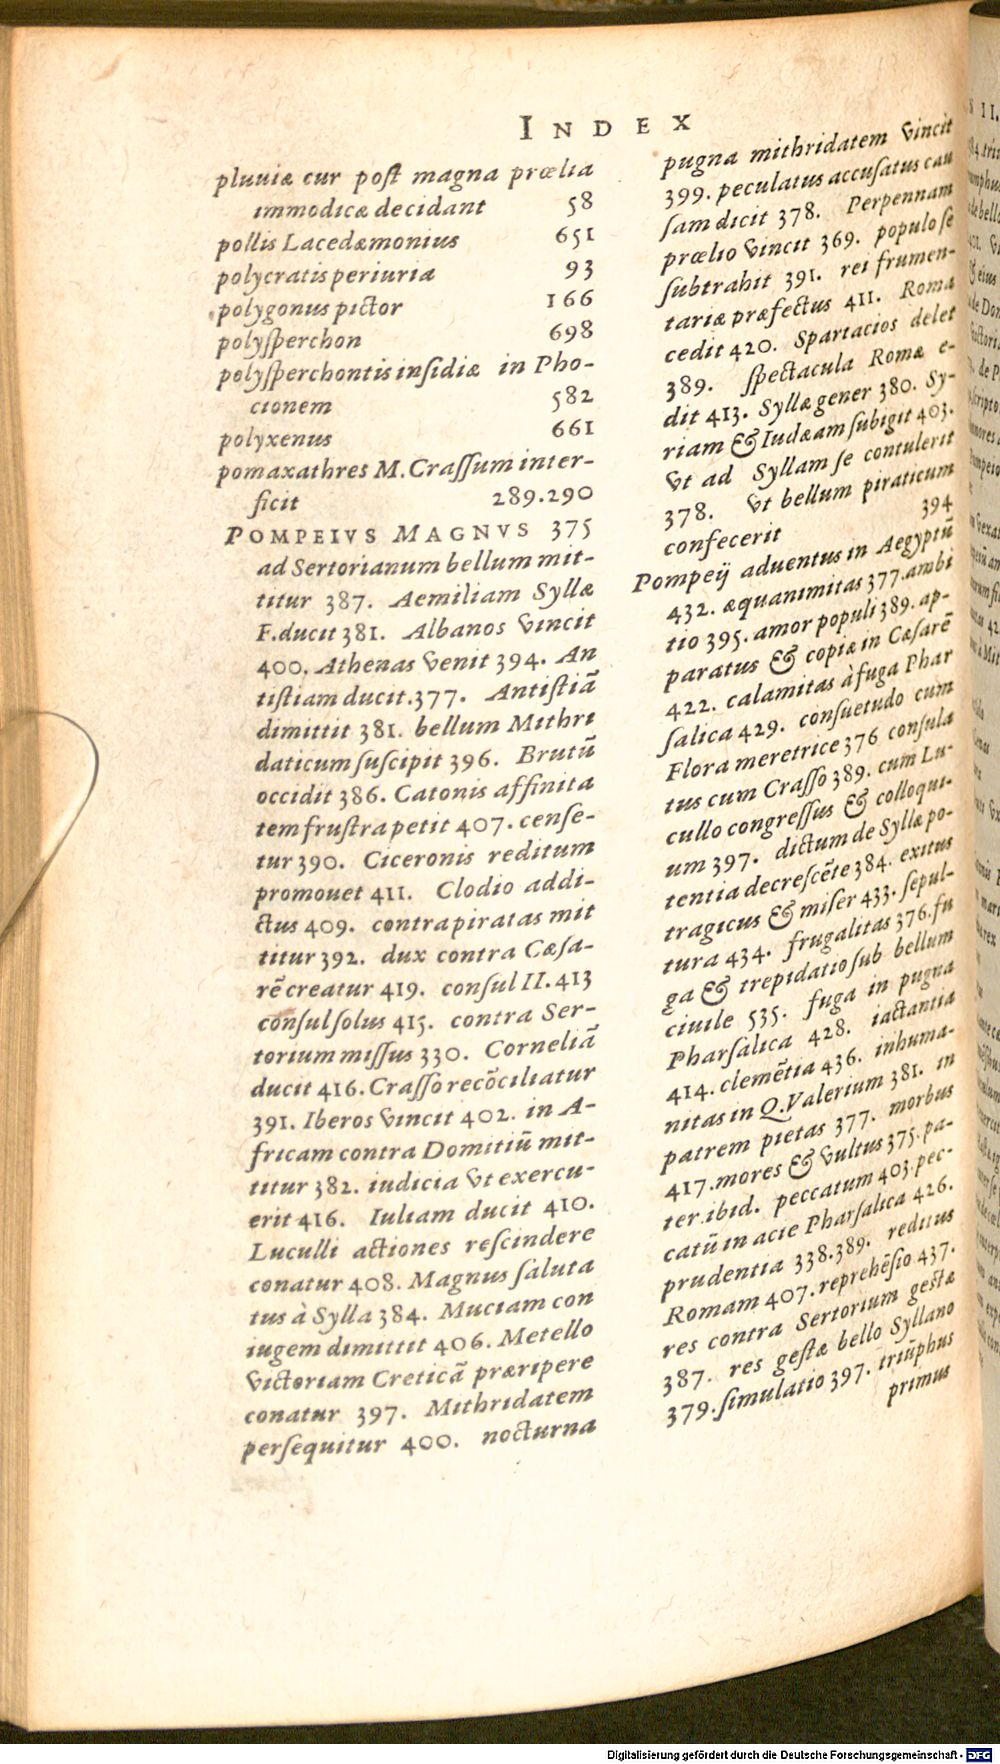 INDEX
pluuiæ cur post magna prœlia
immodicæ decidant 58
pollis Lacedæmonius 651
polycratis periuria 93
polygonus pictor 166
polysperchon 698
polysperchontis insidiæ in Pho-
cionem 582
polyxenus 661
pomaxathres M. Crassum inter-
ficit 289.290
POMPEIVS MAGNVS 375
ad Sertorianum bellum mit-
titur 387. Aemiliam Syllæ
F. ducit 381. Albanos vincit
400. Athenas venit 394. An
tistiam ducit. 377. Antistiã
dimittit 381. bellum Mithri
daticum suscipit 396. Brutũ
occidit 386. Catonis affinita
tem frustra petit 407. cense-
tur 390. Ciceronis reditum
promouet 411. Clodio addi-
ctus 409. contra piratas mit
titur 392. dux contra Cæsa-
rẽ creatur 419. consul II. 413
consul solus 415. contra Ser-
torium missus 330. Corneliã
ducit 416. Crasso recõciliatur
391. Iberos vincit 402. in A-
fricam contra Domitiũ mit-
titur 382. iudicia vt exercu-
erit 416. Iuliam ducit 410.
Luculli actiones rescindere
conatur 408. Magnus saluta
tus à Sylla 384. Muciam con
iugem dimittit 406. Metello
victoriam Creticã præripere
conatur 397. Mithridatem
persequitur 400. nocturna
pugna mithridatem vincit
399. peculatus accusatus cau
sam dicit 378. Perpennam
prœlio vincit 369. populo se
subtrahit 391. rei frumen-
tariæ præfectus 411. Roma
cedit 420. Spartacios delet
389. spectacula Romæ e-
dit 413. Syllæ gener 380. Sy-
riam & Iudæam subigit 403.
vt ad Syllam se contulerit
378. vt bellum piraticum
confecerit 394
Pompeij aduentus in Aegyptũ
432. æquanimitas 377. ambi
tio 395. amor populi 389. ap-
paratus & copiæ in Cæsarẽ
422. calamitas à fuga Phar
salica 429. consuetudo cum
Flora meretrice 376 consula
tus cum Crasso 389. cum Lu-
cullo congressus & colloqui-
um 397. dictum de Syllæ po-
tentia decrescẽte 384. exitus
tragicus & miser 433. sepul-
tura 434. frugalitas 376. fu
ga & trepidatio sub bellum
ciuile 535. fuga in pugna
Pharsalica 428. iactantia
414. clemẽtia 436. inhuma-
nitas in Q. Valerium 381. in
patrem pietas 377. morbus
417. mores & vultus 375. pa-
ter. ibid. peccatum 403. pec-
catũ in acie Pharsalica 426.
prudentia 338.389. reditus
Romam 407. reprehẽsio 437.
res contra Sertorium gestæ
387. res gestæ bello Syllano
379. simulatio 397. triũphus
primus
Digitalisierung gefördert durch die Deutsche Forschungsgemeinschaft - DFG